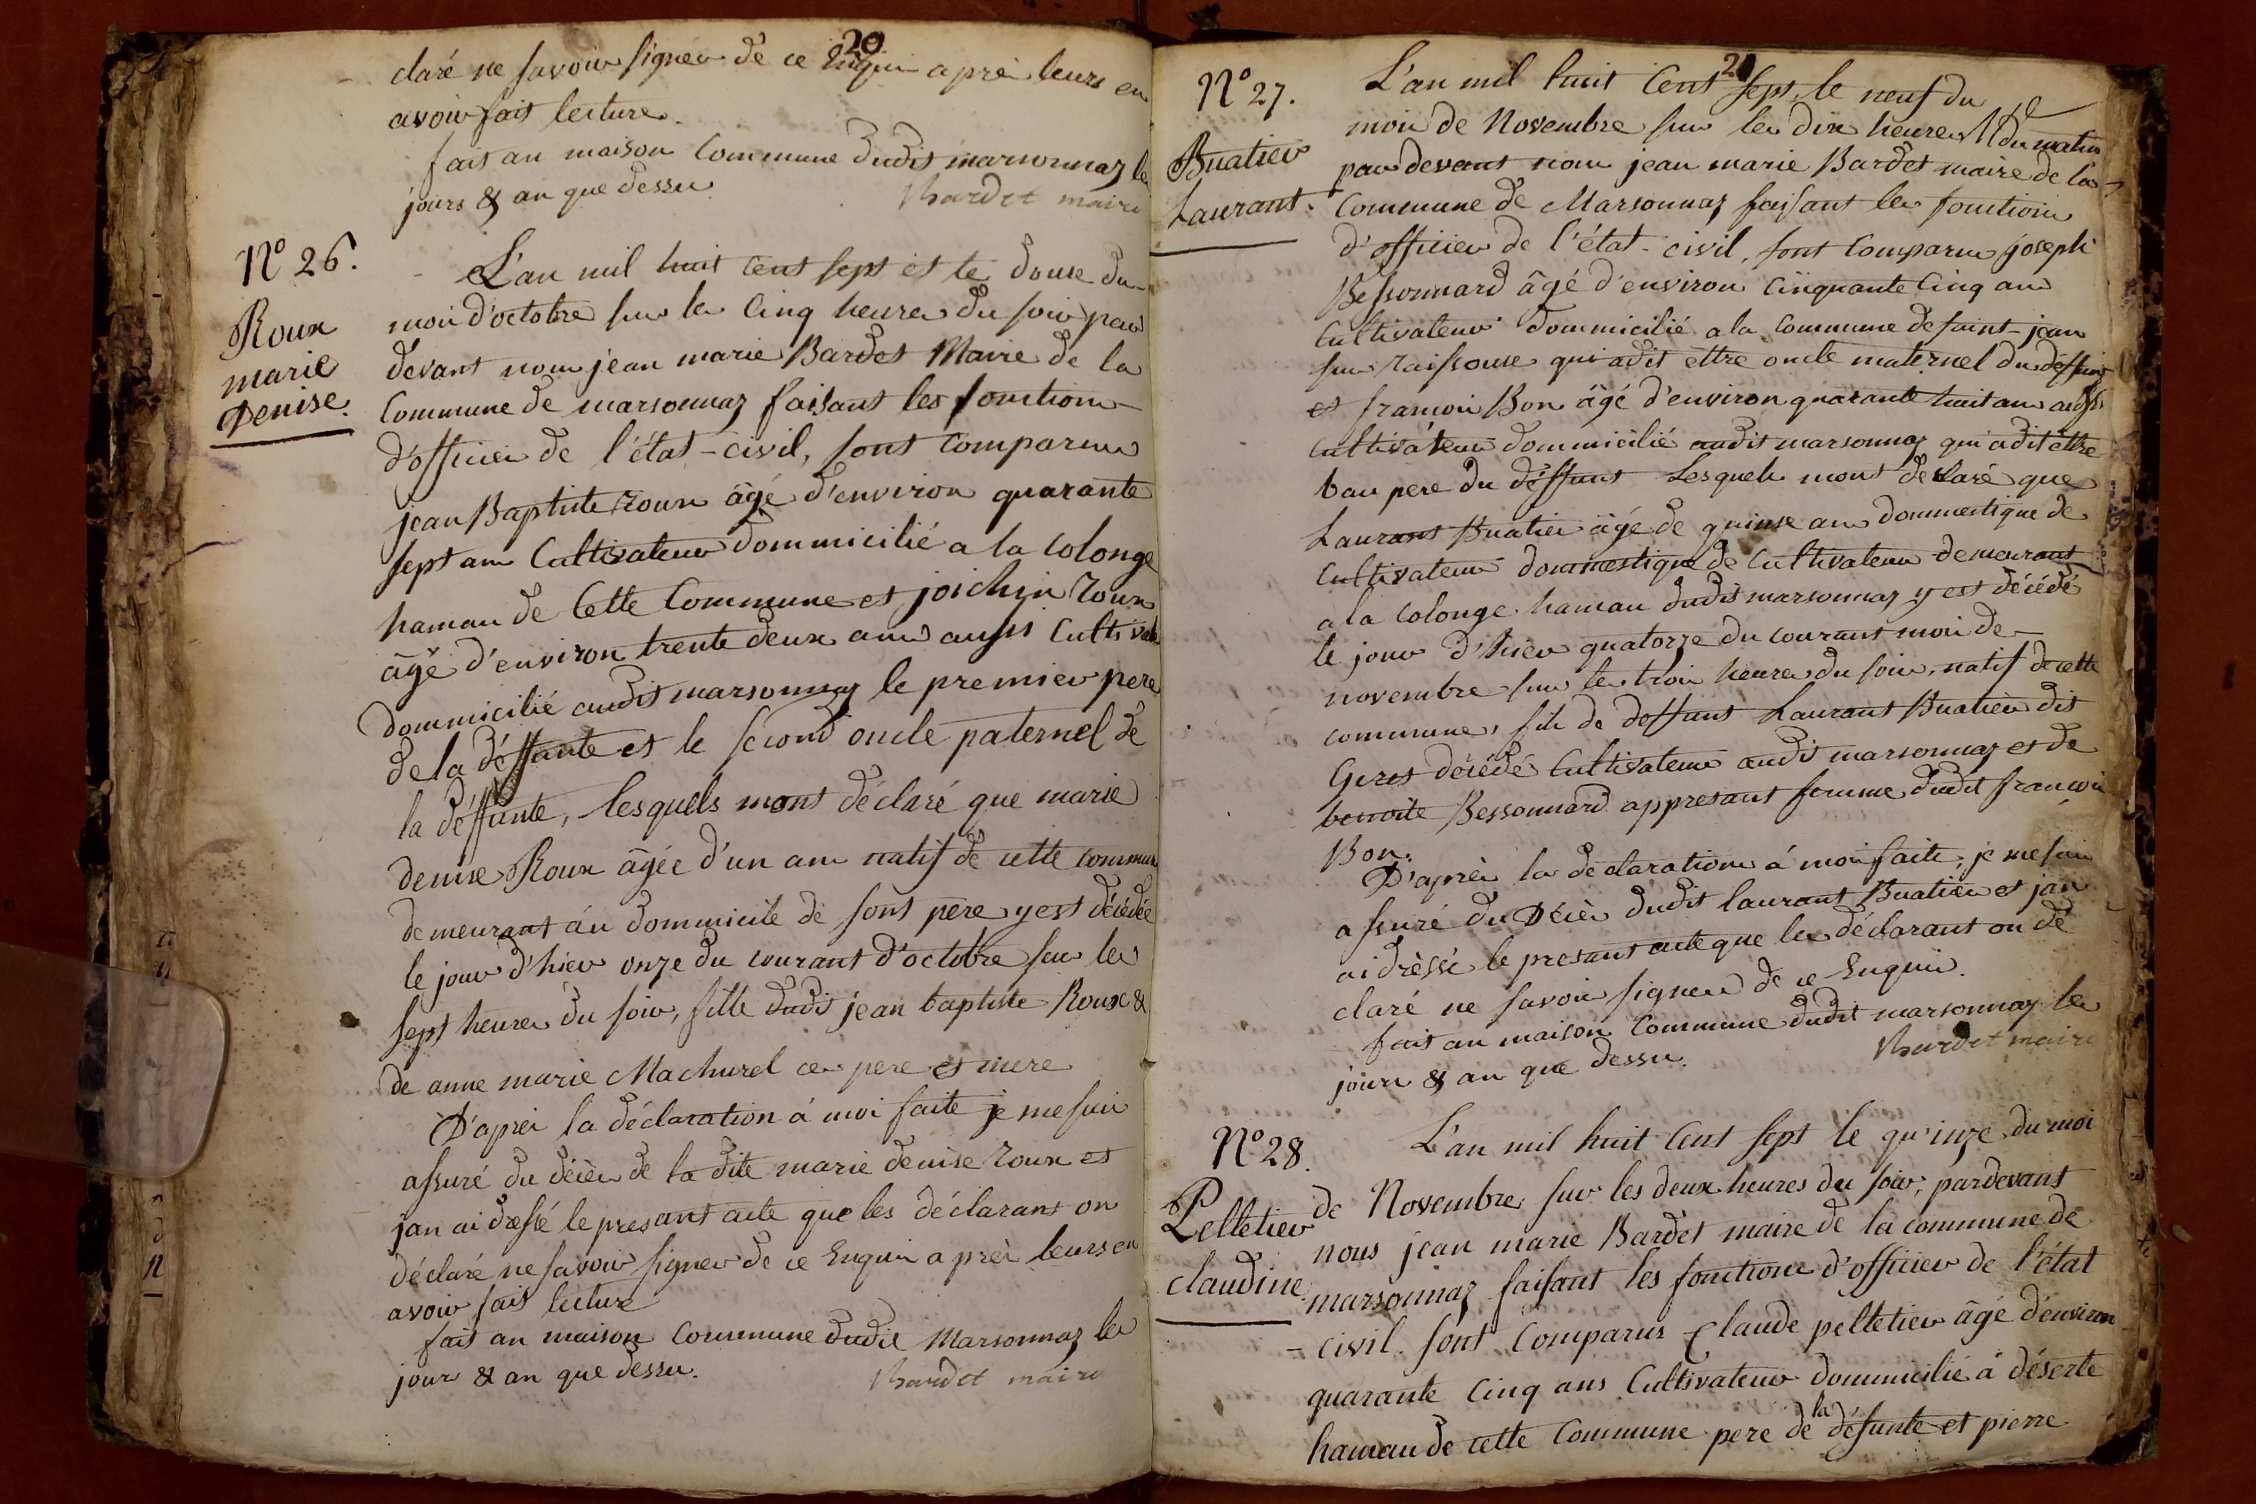 20
claré ne savoir signer de ce Enquis aprei leurs en
avoir fait lecture.
fait au maison Commune dudit marsonnaz les
jours & an que dessu.
Bardet maire
N° 26.
Roux
marie
Denise.
L'an mil huit cent sept et le douse du
moi d'octobre sur les Cinq heures du soir par
devant nous jean marie Bardet Maire de la
Commune de marsonnaz faisant les fonctions
d'officier de l'état-civil, sont comparus
jean Baptiste roux âgé d'environ quarante
sept ans Cultivateur dommicilié a la Colonge
hamau de Cette Commune et joichin roux
âgé d'environ trente deux ans aussi Cultivate
dommicilié audit marsonnaz le premier pere
de la déffunte et le second oncle paternel de
la déffunte, lesquels mont déclaré que marie
denise Roux âgée d'un ans natif de cette commune
demeurant au dommicile de sont père y est décédée
le jour d'hier onze du courant d'octobre sur les
sept heures du soir, fille dudit jean baptiste Roux &
de anne marie Machurel ces pere et mere
D'aprei la déclaration à moi faite je me suis
assuré du décès de la dite marie denise roux et
jan ai dressé le presant acte que les déclarant on
déclaré ne savoir signer de ce Enquis a prei leurs en
avoir fait lecture
fait au maison Commune dudit Marsonnaz les
jour & an que dessu.
Bardet maire
21
N° 27.
Buatier
Laurant.
L'an mil huit Cent sept, le neuf du
moi de Novembre sur les dix heures du matin
par devant nous jean marie Bardet maire de la
Commune de Marsonnaz faisant les fonctions
d'officier de l'état-civil, sont Comparus joseph
Bessonnard âgé d'environ Cinquante Cinq ans
Cultivateur dommicilié a la Commune de saint-jean
sur raissouse qui adit ettre oncle maternel du déffunt
et francoi Bon âgé d'environ quarante huit ans aussi
cultivateur dommicilié audit marsonnaz qui adit ettre
bau pere du déffunt Lesquels mont déclaré que
Laurant Buatier âgé de quinse ans dommestique de
Cultivateur dommestique de Cultivateur demeurant
a la colonge hamau dudit marsonnaz y est décédé
le jour d'hier quatorze du courant moi de
novembre sur les troi heures du soir, natif de cette
commune, fils de deffunt Laurant Buatier dit
Geret décédé Cultivateur audit marsonnaz et de
benoite Bessonnard appresant femme dudit francoi
Bon.
D'aprèi la déclaration à moi faite, je me suis
assuré du Décès dudit laurant Buatier et jan
ai drèssé le presant acte que les déclarant on dé
claré ne savoir signer de ce Enquis.
fait au maison Commune dudit marsonnaz les
jours & an que dessu.
Bardet maire
N° 28.
Pelletier
Claudine.
L'an mil huit Cent sept le quinze du moi
de Novembre sur les deux heures du soir, pardevant
nous jean marie Bardet maire de la commune de
marsonnaz faisant les fonctions d'officier de l'état
- civil. sont Comparus Claude pelletier âgé d'environ
quarante Cinq ans Cultivateur dommicilié à déserte
hamau de cette Commune pere de la défunte et pierre